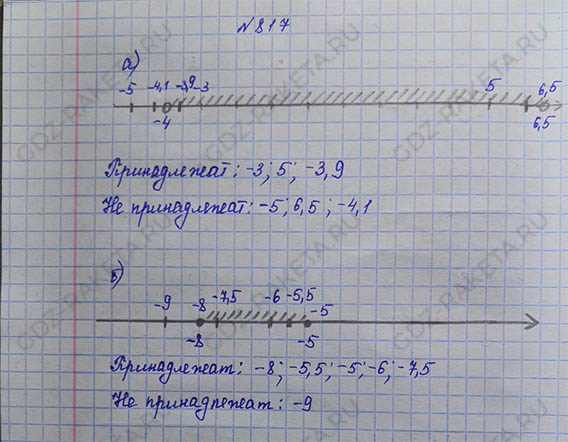 № 817
а)
-5 -4,1 -3,9 -3 5 6,5
-4 6,5
Принадлежат: -3; 5; -3,9
Не принадлежат: -5; 6,5; -4,1
б)
-9 -8 -7,5 -6 -5,5 -5
-8 -5
Принадлежат: -8; -5,5; -5; -6; -7,5
Не принадлежат: -9
GDZ-RAKETA.RU